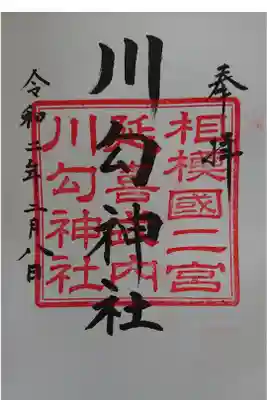 奉拝
川勾神社
令和二年二月八日
相模國二宮
延喜式内
川勾神社